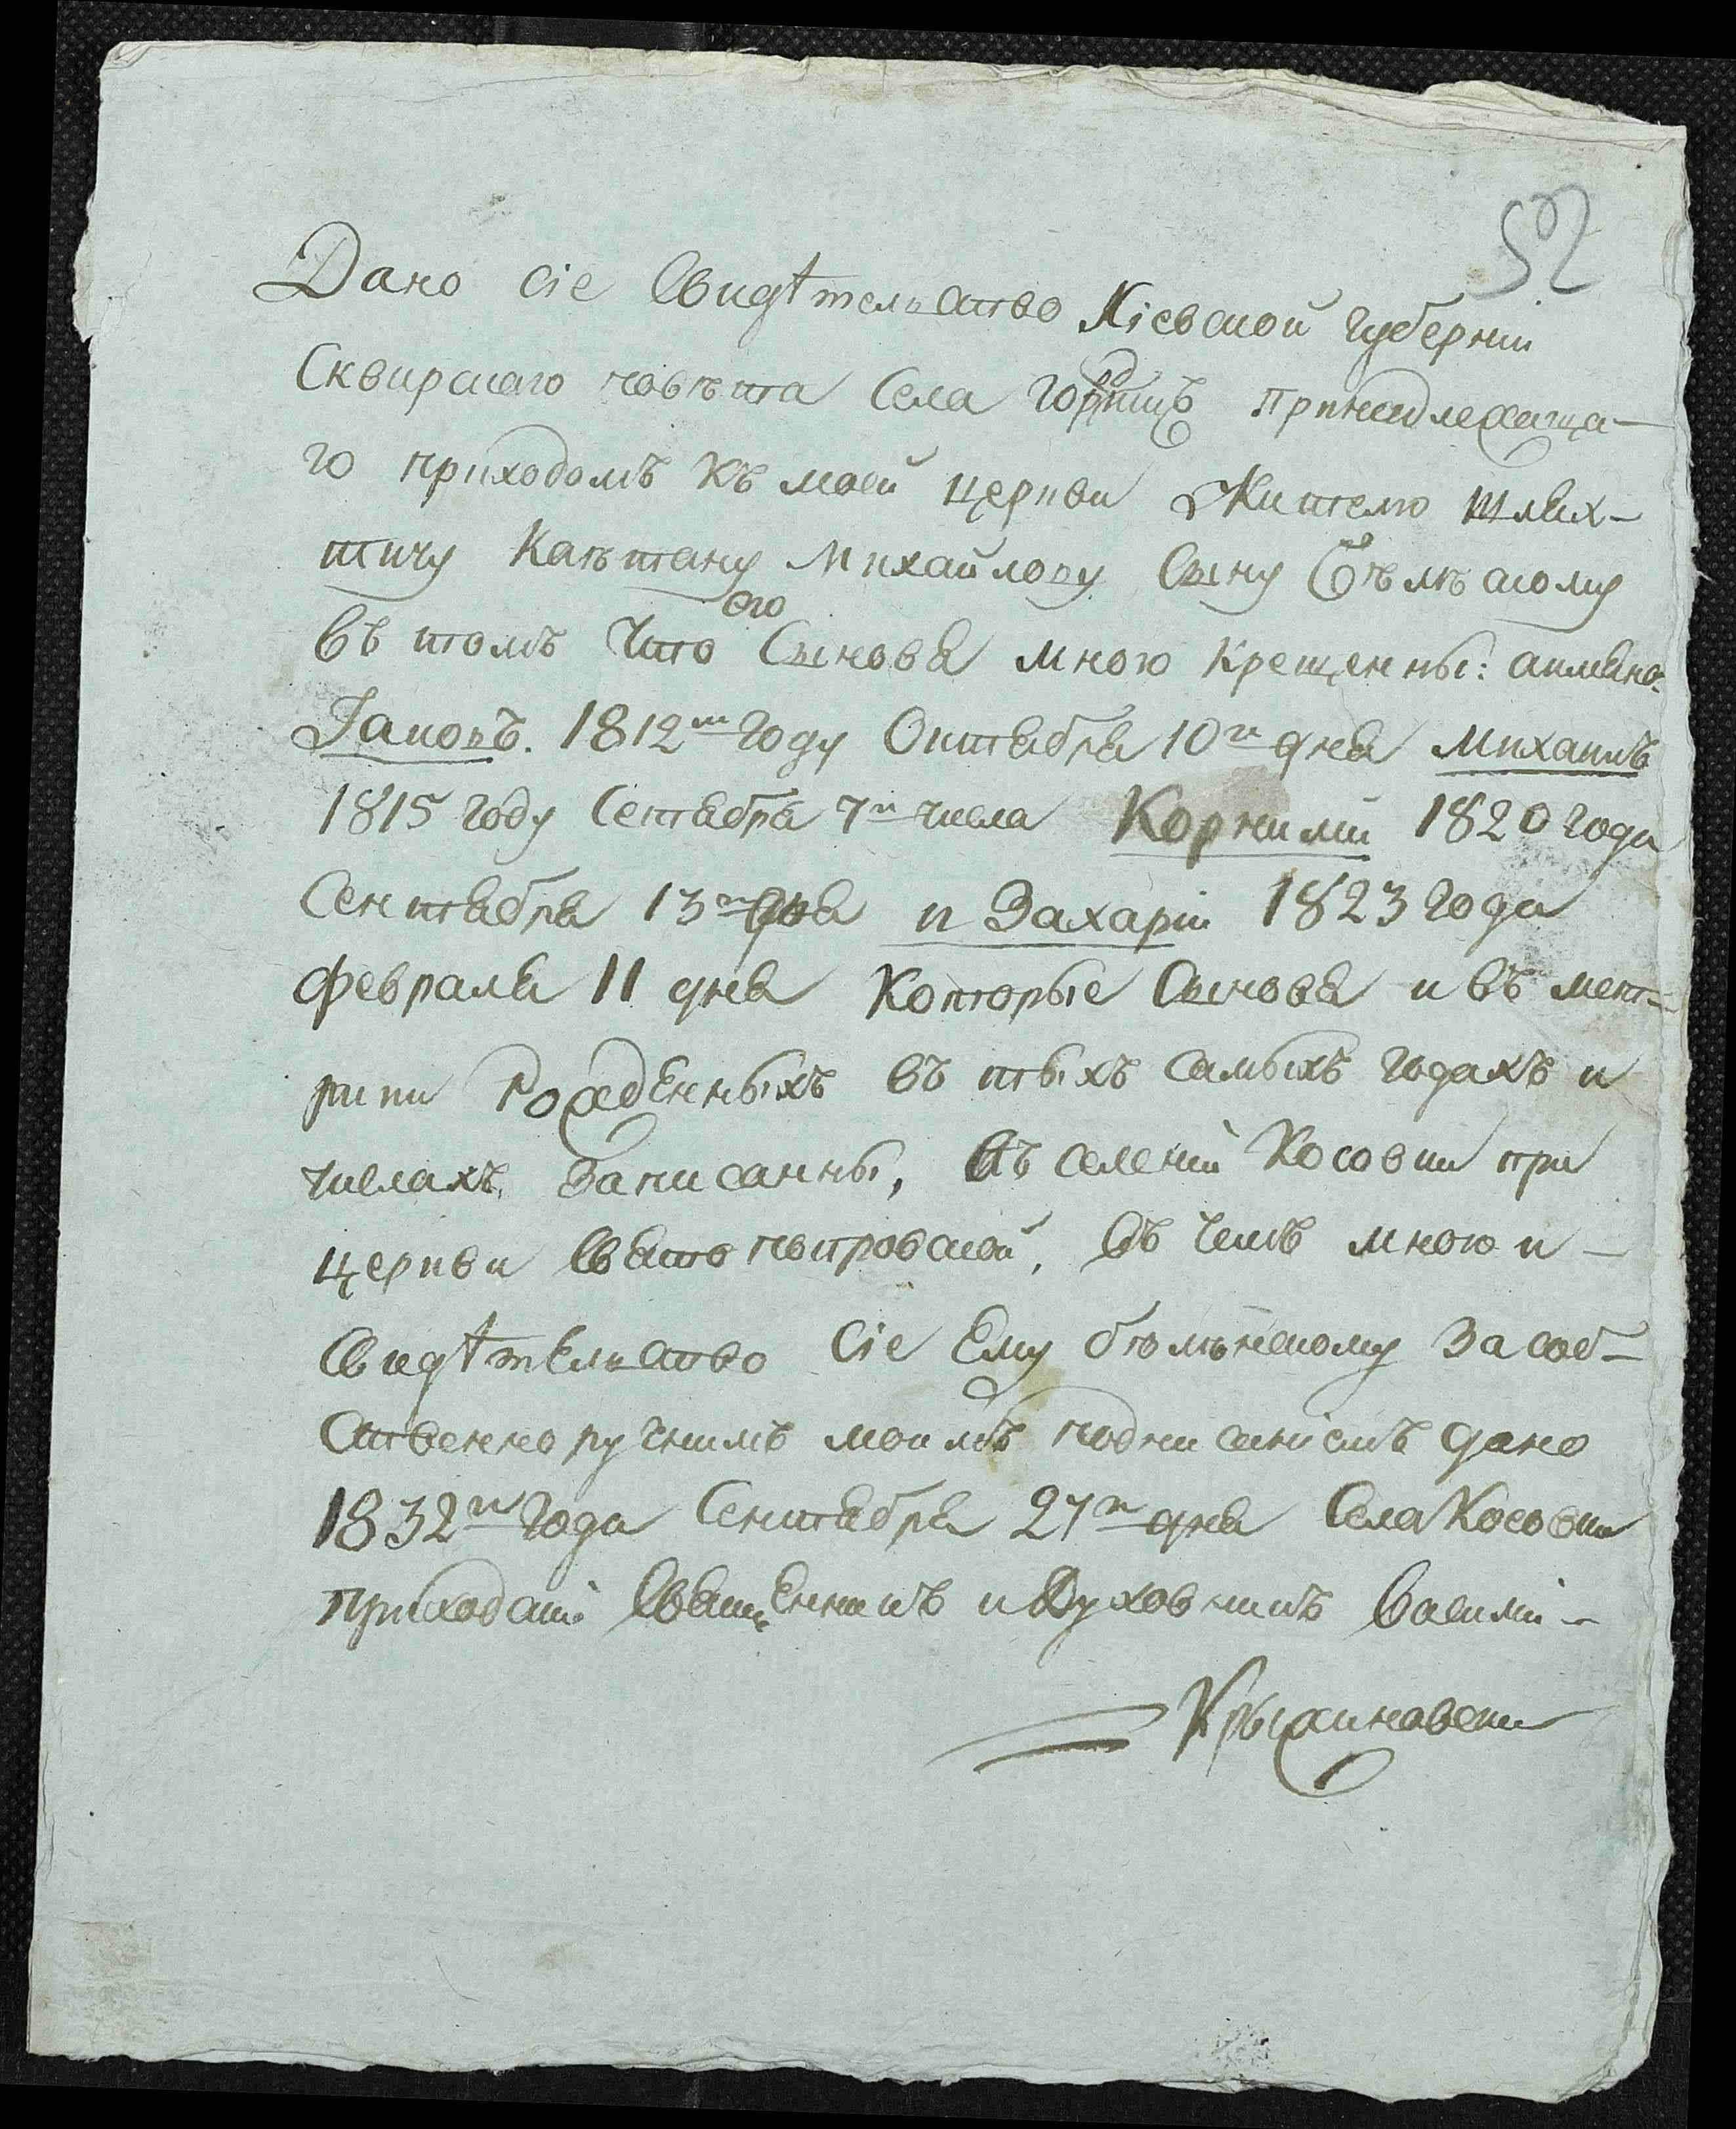 52
Дано сіе Свидѣтельство Кіевской губерніи
Сквирскаго повѣта Села принадлежаща-
го приходомъ къ моей церкви Жителю шлях-
тичу Каѣтану Михайлову Сыну Бѣлѣскому
въ томъ Что его Сынове мною крещенны: аимяно:
Іаковъ. 1812го Году Октября 10го дня Михаилъ
1815 году Сентября 7го числа Корнилій 1820 года
Сентября 13го дня и Захарій 1823 года
Февраля 11 дня Которые Сынове и въ мет-
рики Рожденныхъ въ тыхъ самыхъ годахъ и
числахъ Записанны, въ селеніи Косовки при
церкви Святопытровской, въ чемъ мною и -
Свидѣтельство Сіе Ему бѣлѣнскому За соб-
ственноручнимъ моимъ подписаніемъ дано
1832го Года Сентября 27го дня Села Косовки
приходскій Священникъ и Духовникъ Василій -
Крыжановски